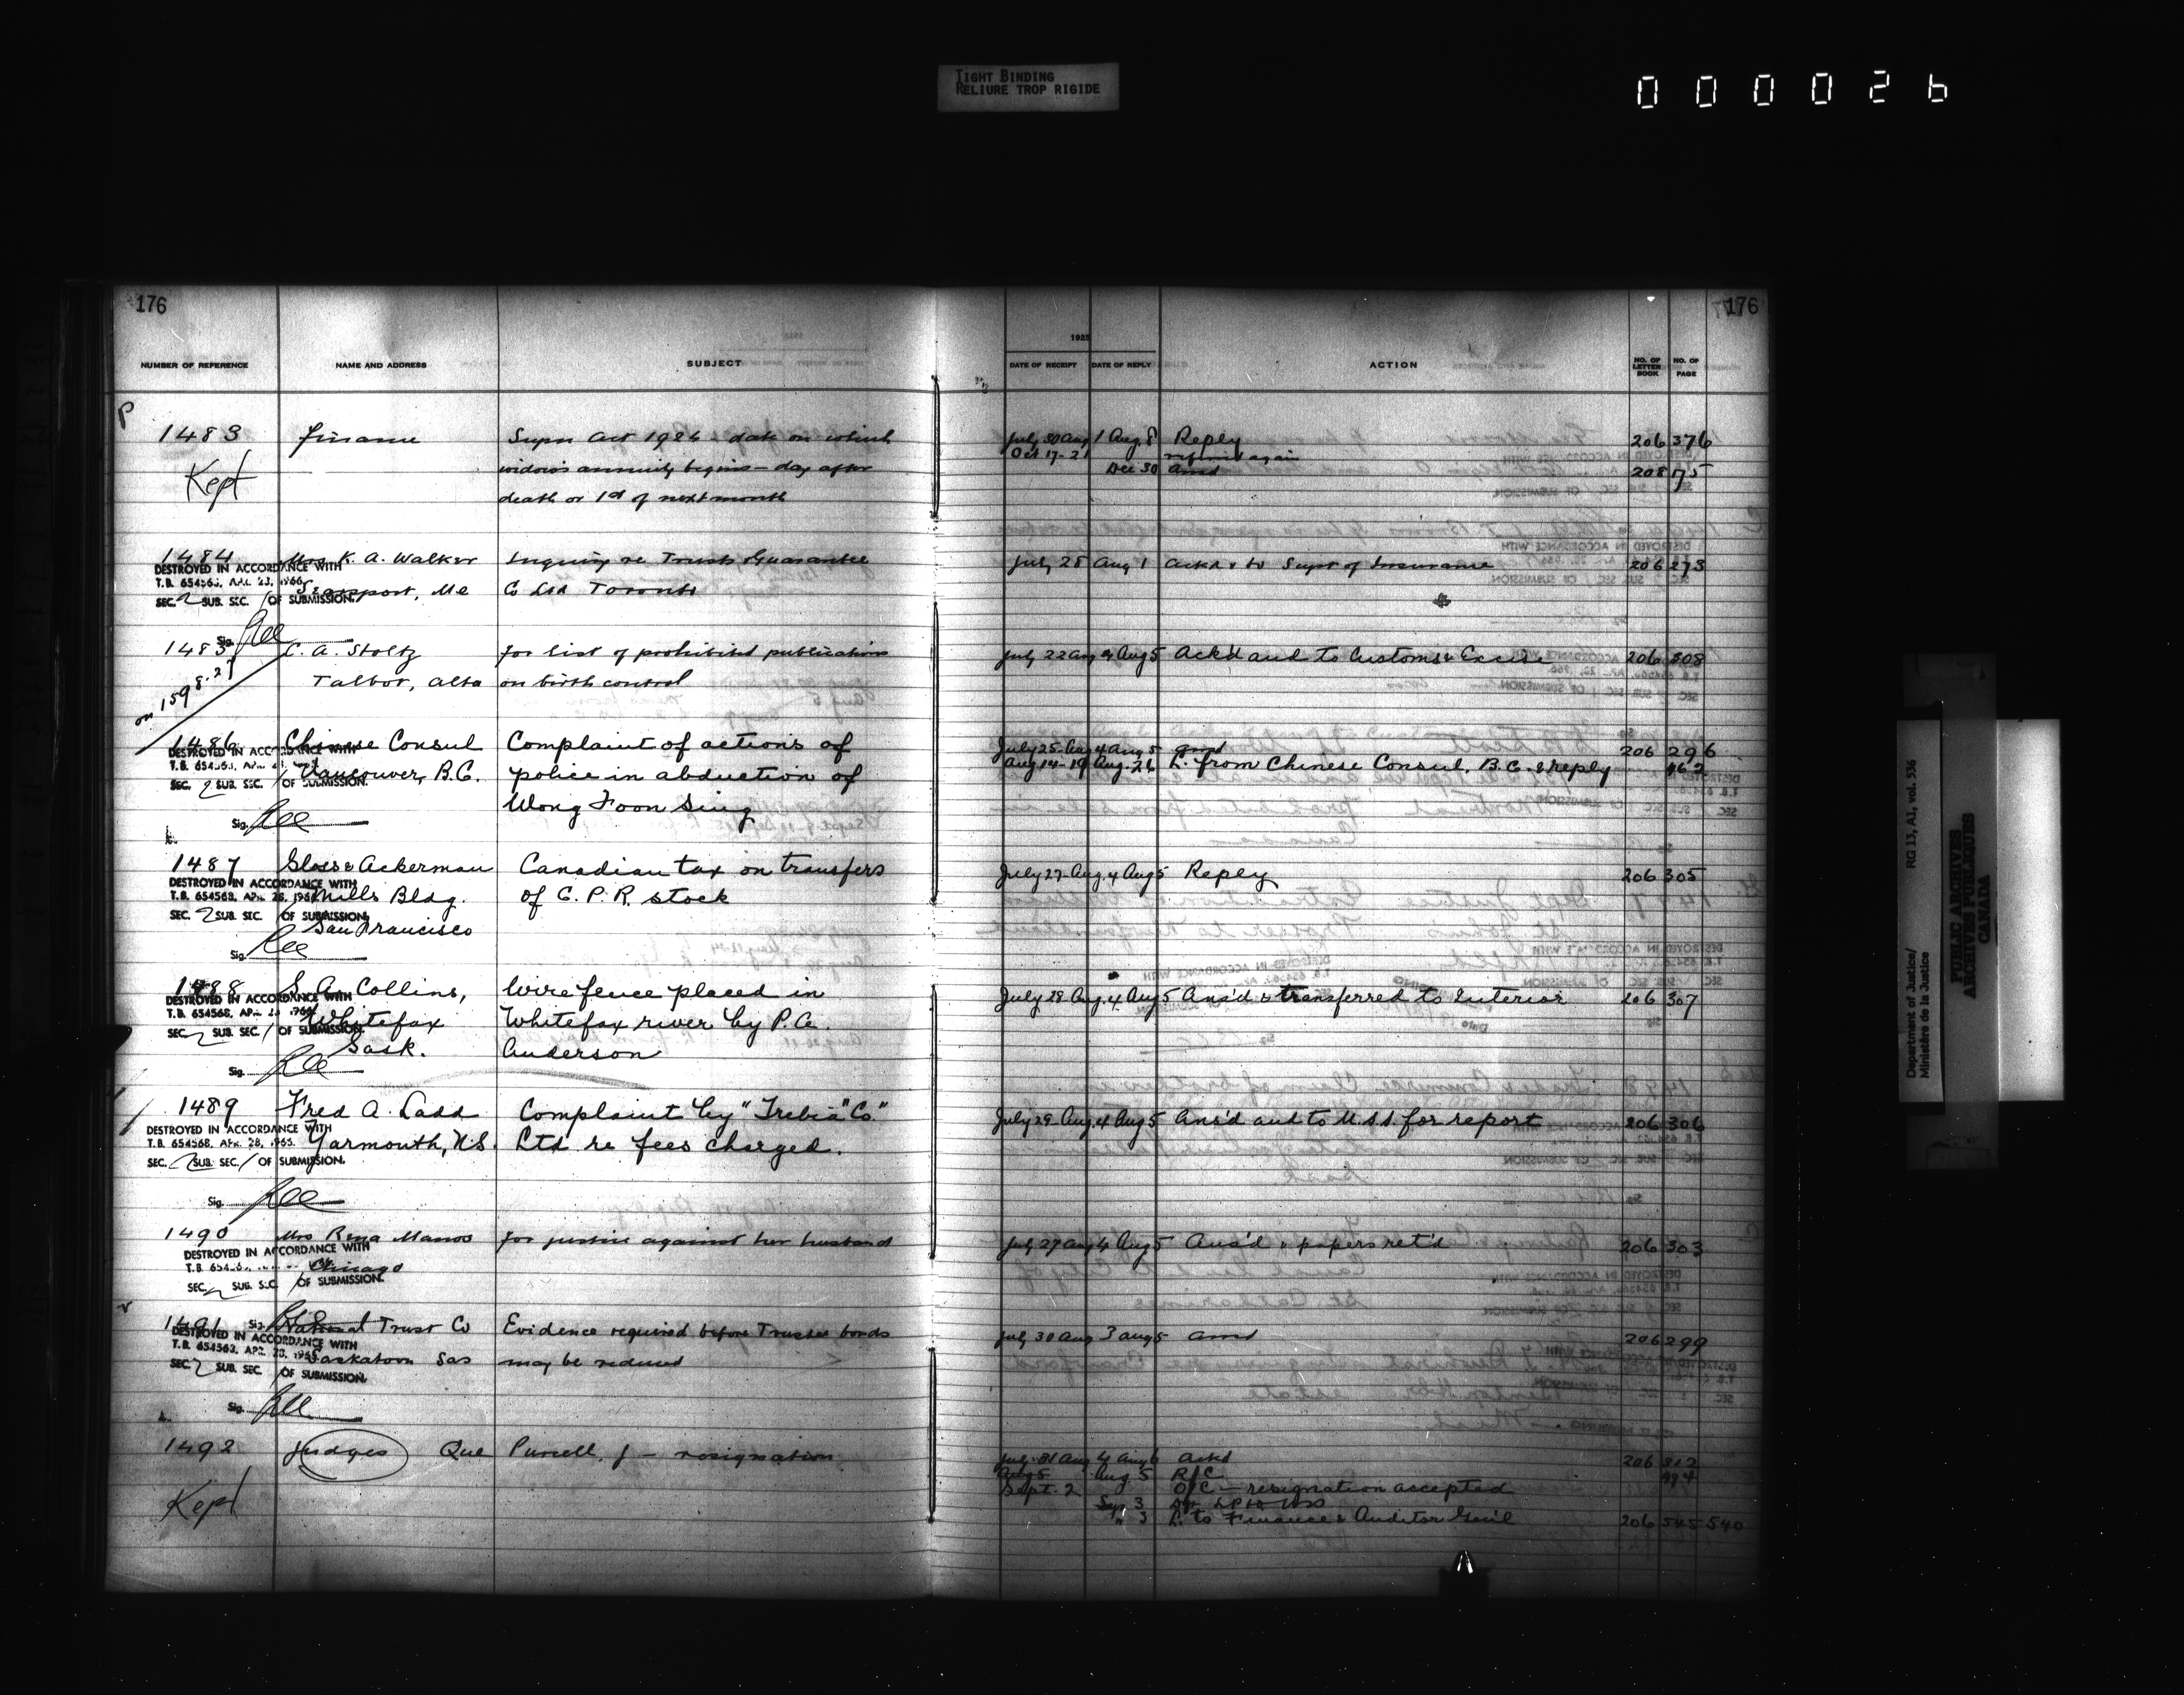 TIGHT BINDING
RELIURE TROP RIGIDE
0 0 0 0 2 6
176
176
1925
NUMBER OF REFERENCE NAME AND ADDRESS SUBJECT DATE OF RECEIPT DATE OF REPLY ACTION NO. OF LETTER BOOK NO. OF PAGE
P
1483 Finance Supn Act 1924 - date on which July 30 Aug 1 Aug. 8 Reply 206 376
Oct 17-21 again
Kept widow's annuity begins - day after Dec 30 ansd 208 175
death or 1st of next month
1484 Mrs K. A. Walker Inquiry re Trusts Guarantee July 28 Aug 1 Ackd & to Supt of Insurance 206 273
DESTROYED IN ACCORDANCE WITH
T.B. 654563, APR. 23, 1966
SEC. 2 SUB. SEC. / OF SUBMISSION. Searsport, Me Co Ltd Toronto
Sig.
1485 C. A. Stoltz for list of prohibited publications July 22 Aug 4 Aug 5 Ack'd and to Customs & Excise 206 308
on 1598.27 Talbot, Alta on birth control
1486 Chinese Consul Complaint of actions of July 25 Aug 4 Aug 5 ansd 206 296
DESTROYED IN ACCORDANCE WITH
Vancouver, B.C. police in abduction of Aug 14-19 Aug. 26 L. from Chinese Consul, B.C. & reply 462
SEC. 2 SUB. SEC. / OF SUBMISSION.
Wong Foon Sing
Sig.
1487 Sloss & Ackerman Canadian tax on transfers July 27 Aug. 4 Aug 5 Reply 206 305
DESTROYED IN ACCORDANCE WITH
T.B. 654568, APR. 28, 1966 Mills Bldg. of C.P.R. stock
SEC. 2 SUB. SEC. / OF SUBMISSION.
San Francisco
Sig.
1488 S. A. Collins, Wire fence placed in July 28 Aug. 4 Aug 5 Ans'd & transferred to Interior 206 307
DESTROYED IN ACCORDANCE WITH
T.B. 654568, APR. 28, 1966 Whitefox Whitefox river by P.A.
SEC. 2 SUB. SEC. / OF SUBMISSION.
Sask. Anderson
Sig.
1489 Fred A. Ladd Complaint by "Trebia" Co." July 29 Aug. 4 Aug 5 Ans'd and to U.S.S. for report 206 306
DESTROYED IN ACCORDANCE WITH
T.B. 654568, APR. 28, 1966. Yarmouth, N.S. Ltd re fees charged.
SEC. 2 SUB. SEC. / OF SUBMISSION.
Sig.
1490 Mrs Rena Manos for justice against her husband July 27 Aug 4 Aug 5 Ans'd " papers ret'd 206 303
DESTROYED IN ACCORDANCE WITH
Chicago
SEC. 2 SUB. SEC. / OF SUBMISSION.
Sig.
1491 National Trust Co Evidence required before Trustee bonds July 30 Aug 3 Aug 5 ansd 206 299
DESTROYED IN ACCORDANCE WITH
T.B. 654563, APR. 28, 1966 Saskatoon Sas may be reduced
SEC. 2 SUB. SEC. / OF SUBMISSION.
Sig.
1492 Judges Que Purcell, J - resignation July 31 Aug 4 Aug 6 Ackd 206 312
Aug 5 Aug. 5 R/C 494
Kept Sept. 2 O/C - resignation accepted
Sep 3
" 3 L. to Finance & Auditor Gen'l 206 545 540
Department of Justice/
Ministère de la Justice
RG 13, A1, vol. 536
PUBLIC ARCHIVES
ARCHIVES PUBLIQUES
CANADA